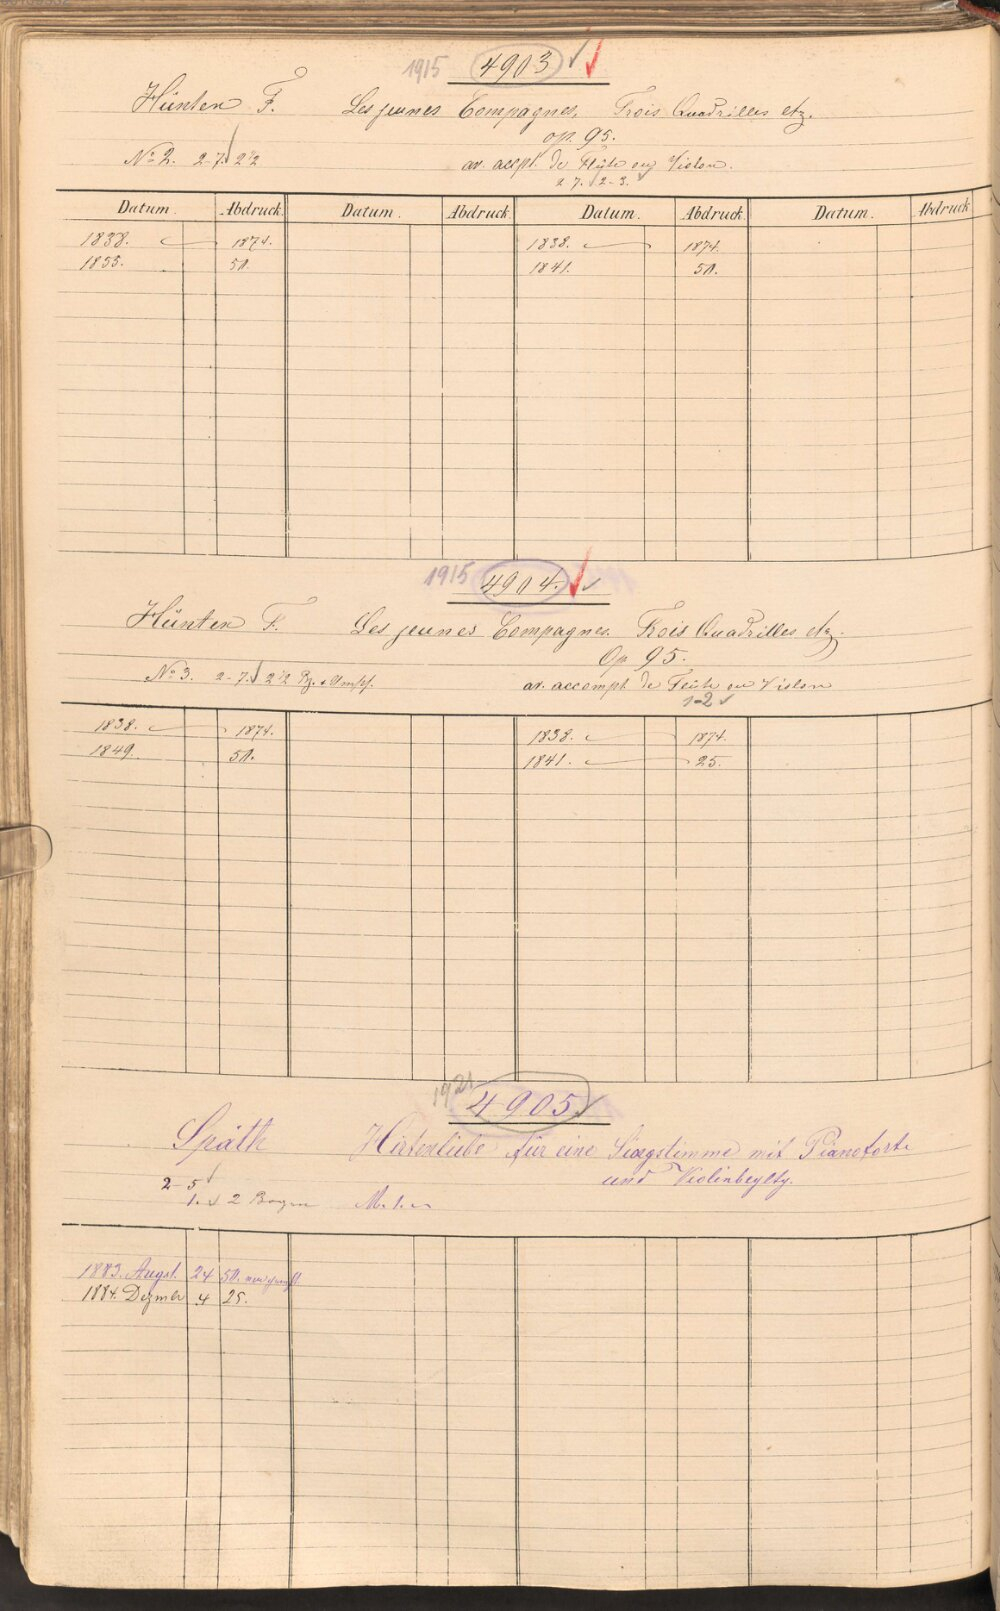 1915 4903 ✓ ✓
Hünten F. Les jeunes Compagnes. Trois Quadrilles etz.
op. 95.
No 2. 2-7. ✓ 2 1/2 av. accpt. de Flûte ou Violon.
2 7. ✓ 2-3.
Datum. Abdruck. Datum. Abdruck. Datum. Abdruck. Datum. Abdruck
1838. 1874. 1838. 1874.
1855. 50. 1841. 50.
1915 4904. ✓ ✓
Hünten F. Les jeunes Compagnes. Trois Quadrilles etz.
Op 95.
No 3. 2-7. ✓ 2 1/2 av. accompt de Flûte ou Violon
1-2 ✓
1838. 1874. 1838. 1874.
1849. 50. 1841. 25.
1921 4905 ✓
Späth Hirtenliebe für eine Singstimme mit Pianoforte
und Violinbegltg.
2-5 ✓
1. ✓ 2 Bogen
1883. Augst. 24 50.
1884. Dezmbr 4 25.